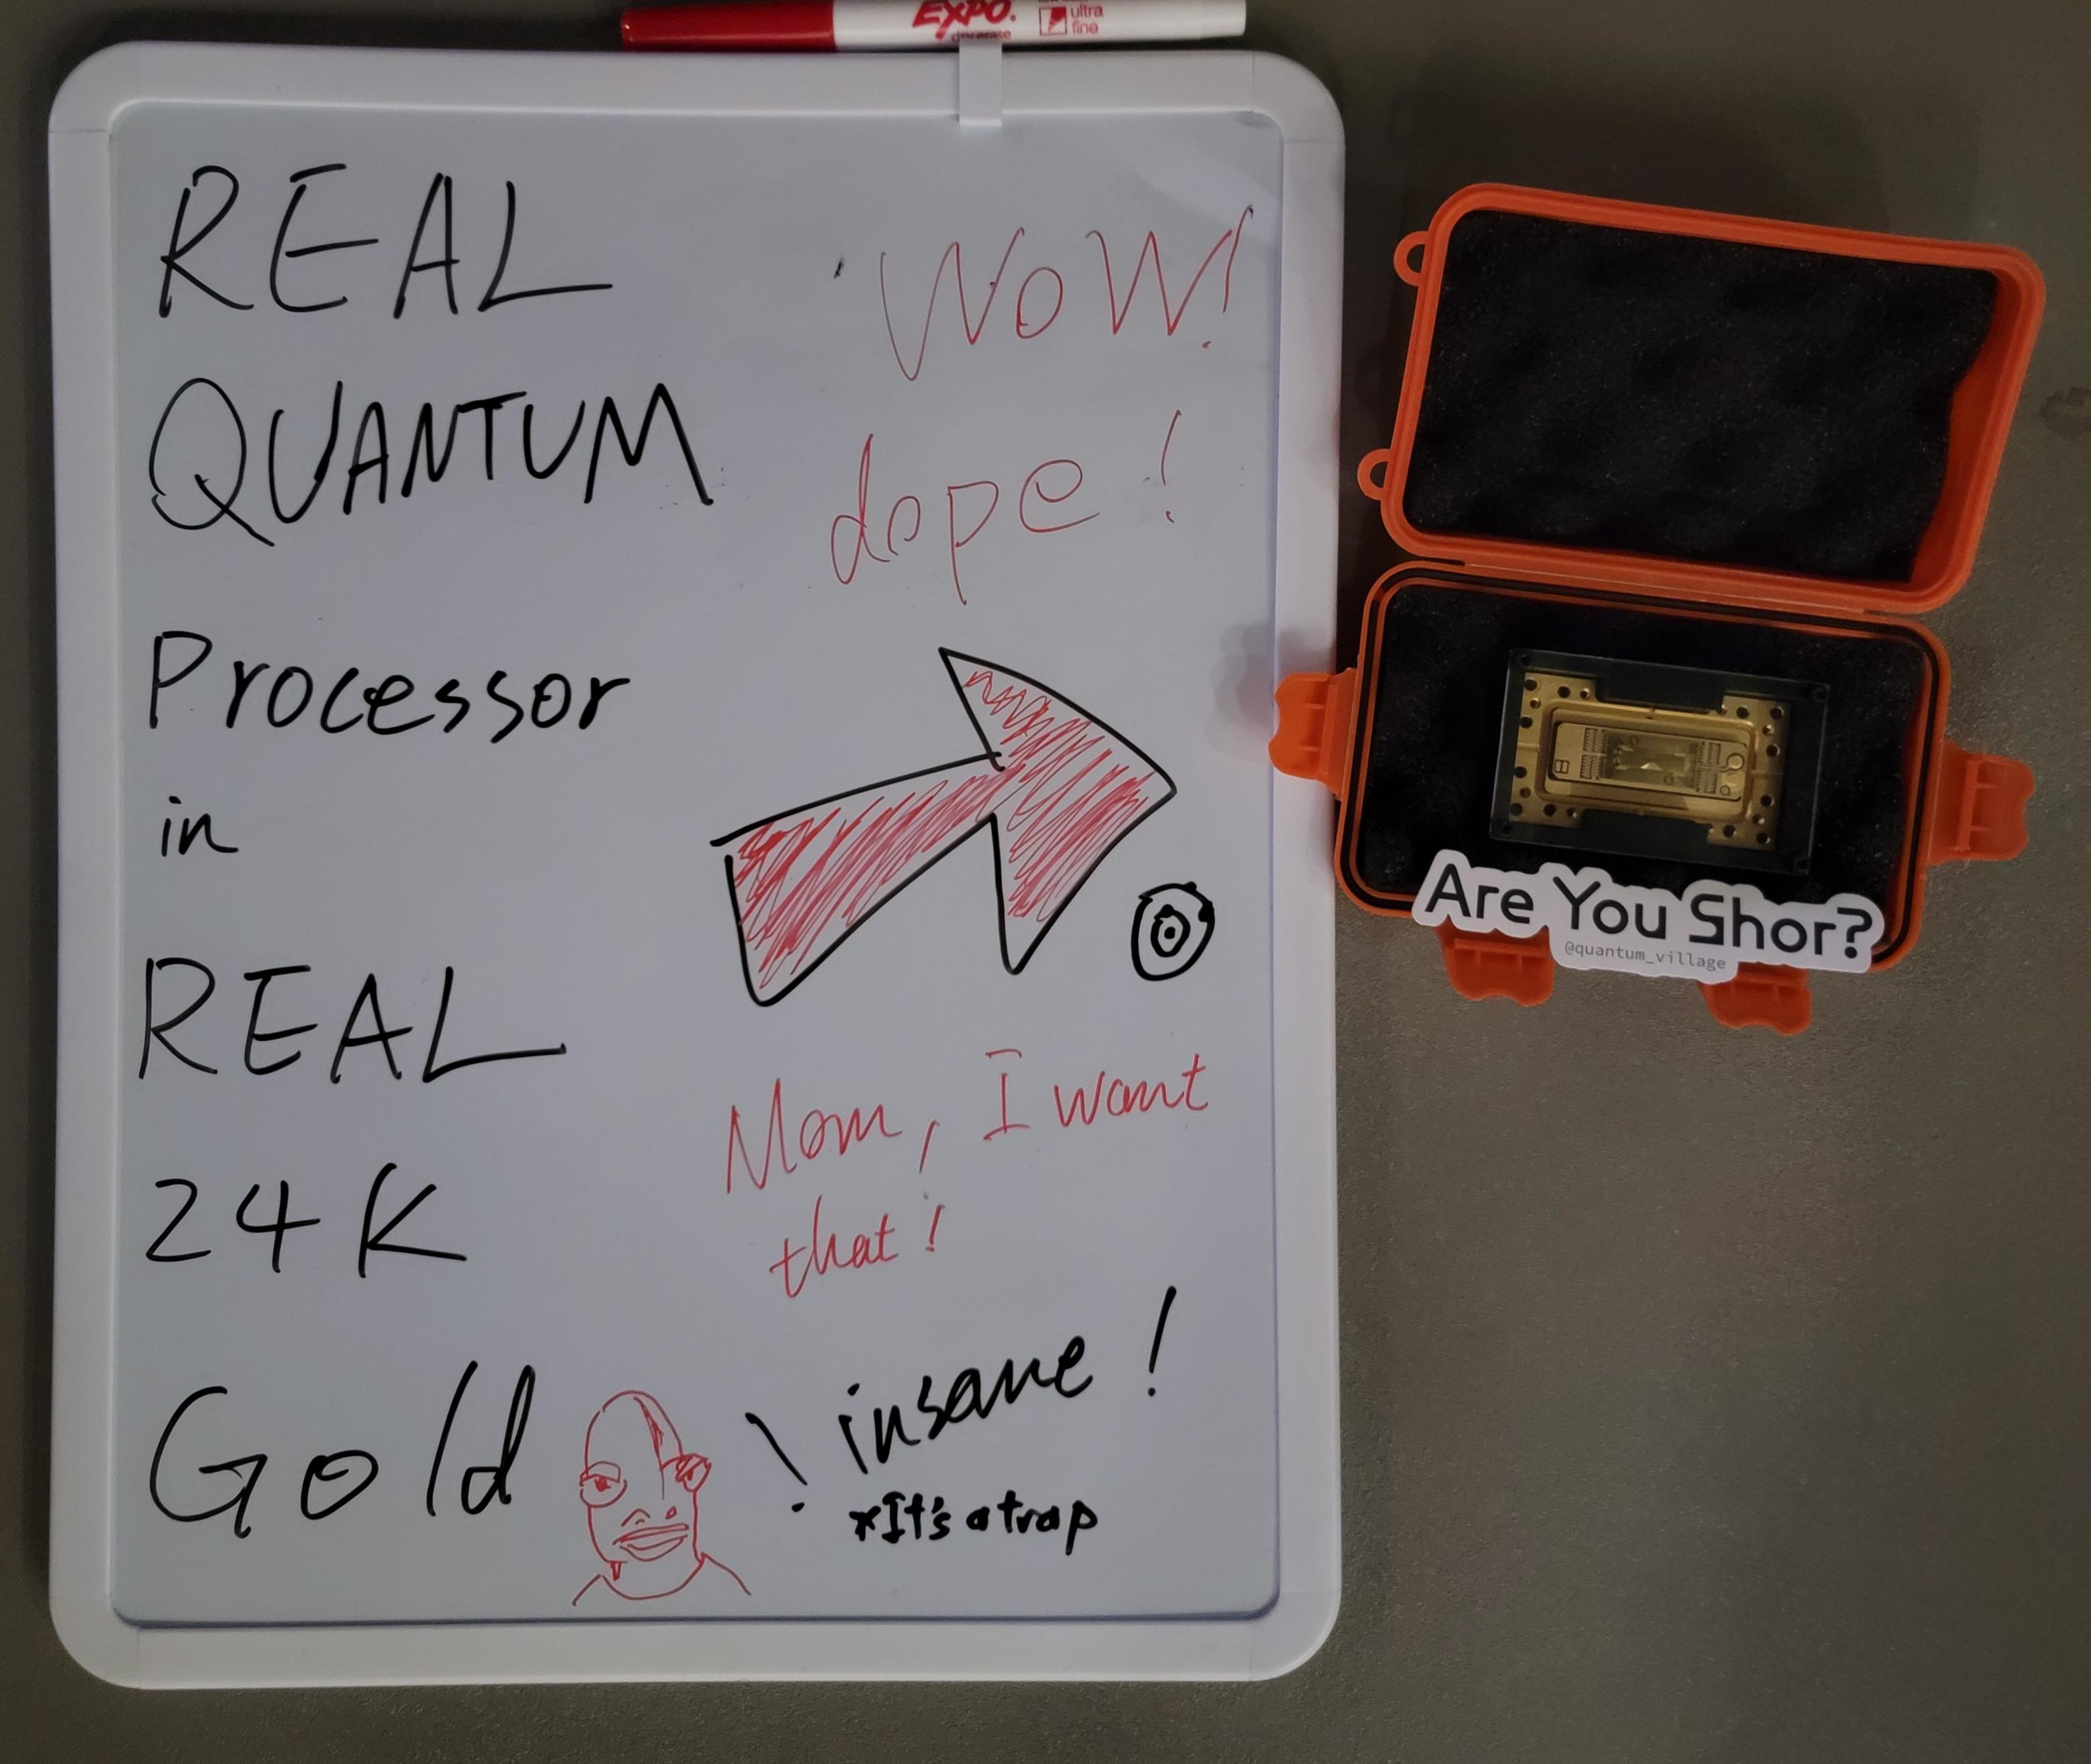 EXPO.
dry erase
ultra
fine
REAL
QUANTUM
Processor
in
REAL
24K
Gold
WoW!
dope!
Mom, I want
that!
! insane!
*It's a trap
Are You Shor?
@quantum_village